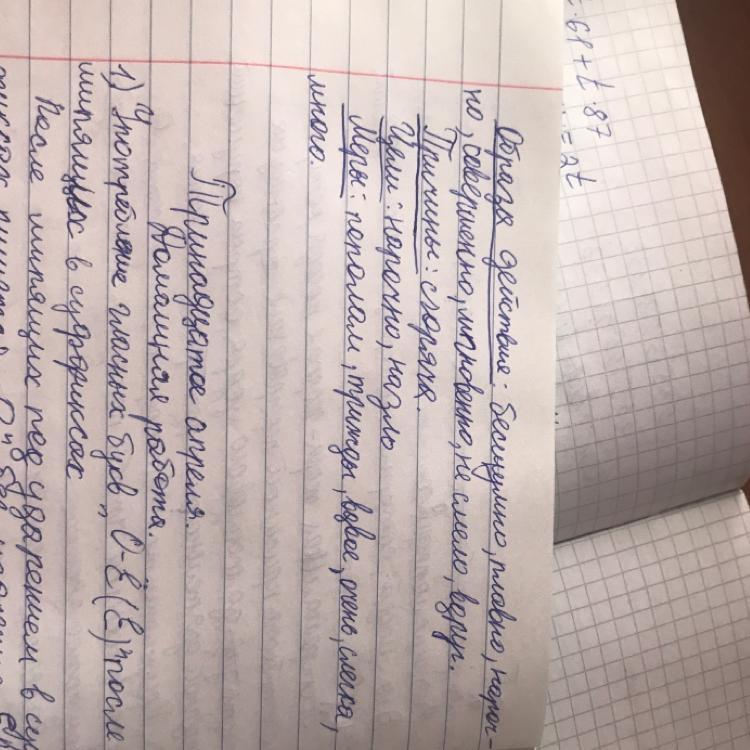 Образа действия: бесшумно, плавно, нароч-
но, совершенно, мгновенно, не смело, вдруг.
Причины: сгоряча.
Цели: нарочно, назло
Меры: пополам, трижды, вдвое, очень, слегка,
много.
Тринадцатое апреля.
Домашняя работа.
1) Употребление гласных букв „О-Ё(Е)" после
шипящих в суффиксах
После шипящих под ударением в суф
фиксах пишется „О"
61 + t · 87
= 2t